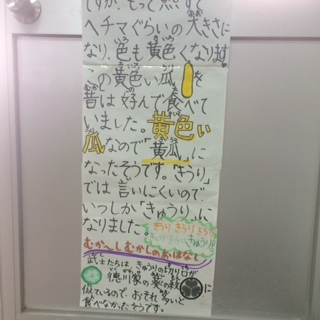 ですが、もって然すと
ヘチマぐらいの大きさに
なり、色も黄色くなります
この黄色い瓜を
昔は好んで食べて
いました。黄色い
瓜なので「黄瓜」に
なったそうです。「きうり」
では言いにくいので
いつしか「きゅうり」に
なりました。
きうり きうり きうり
きゅうり
むか〜しむかしのおはなし
武士たちは、きゅうりの切り口が
徳川家の葵の紋に
似ているので、おそれ多いと
食べなかったそうです。